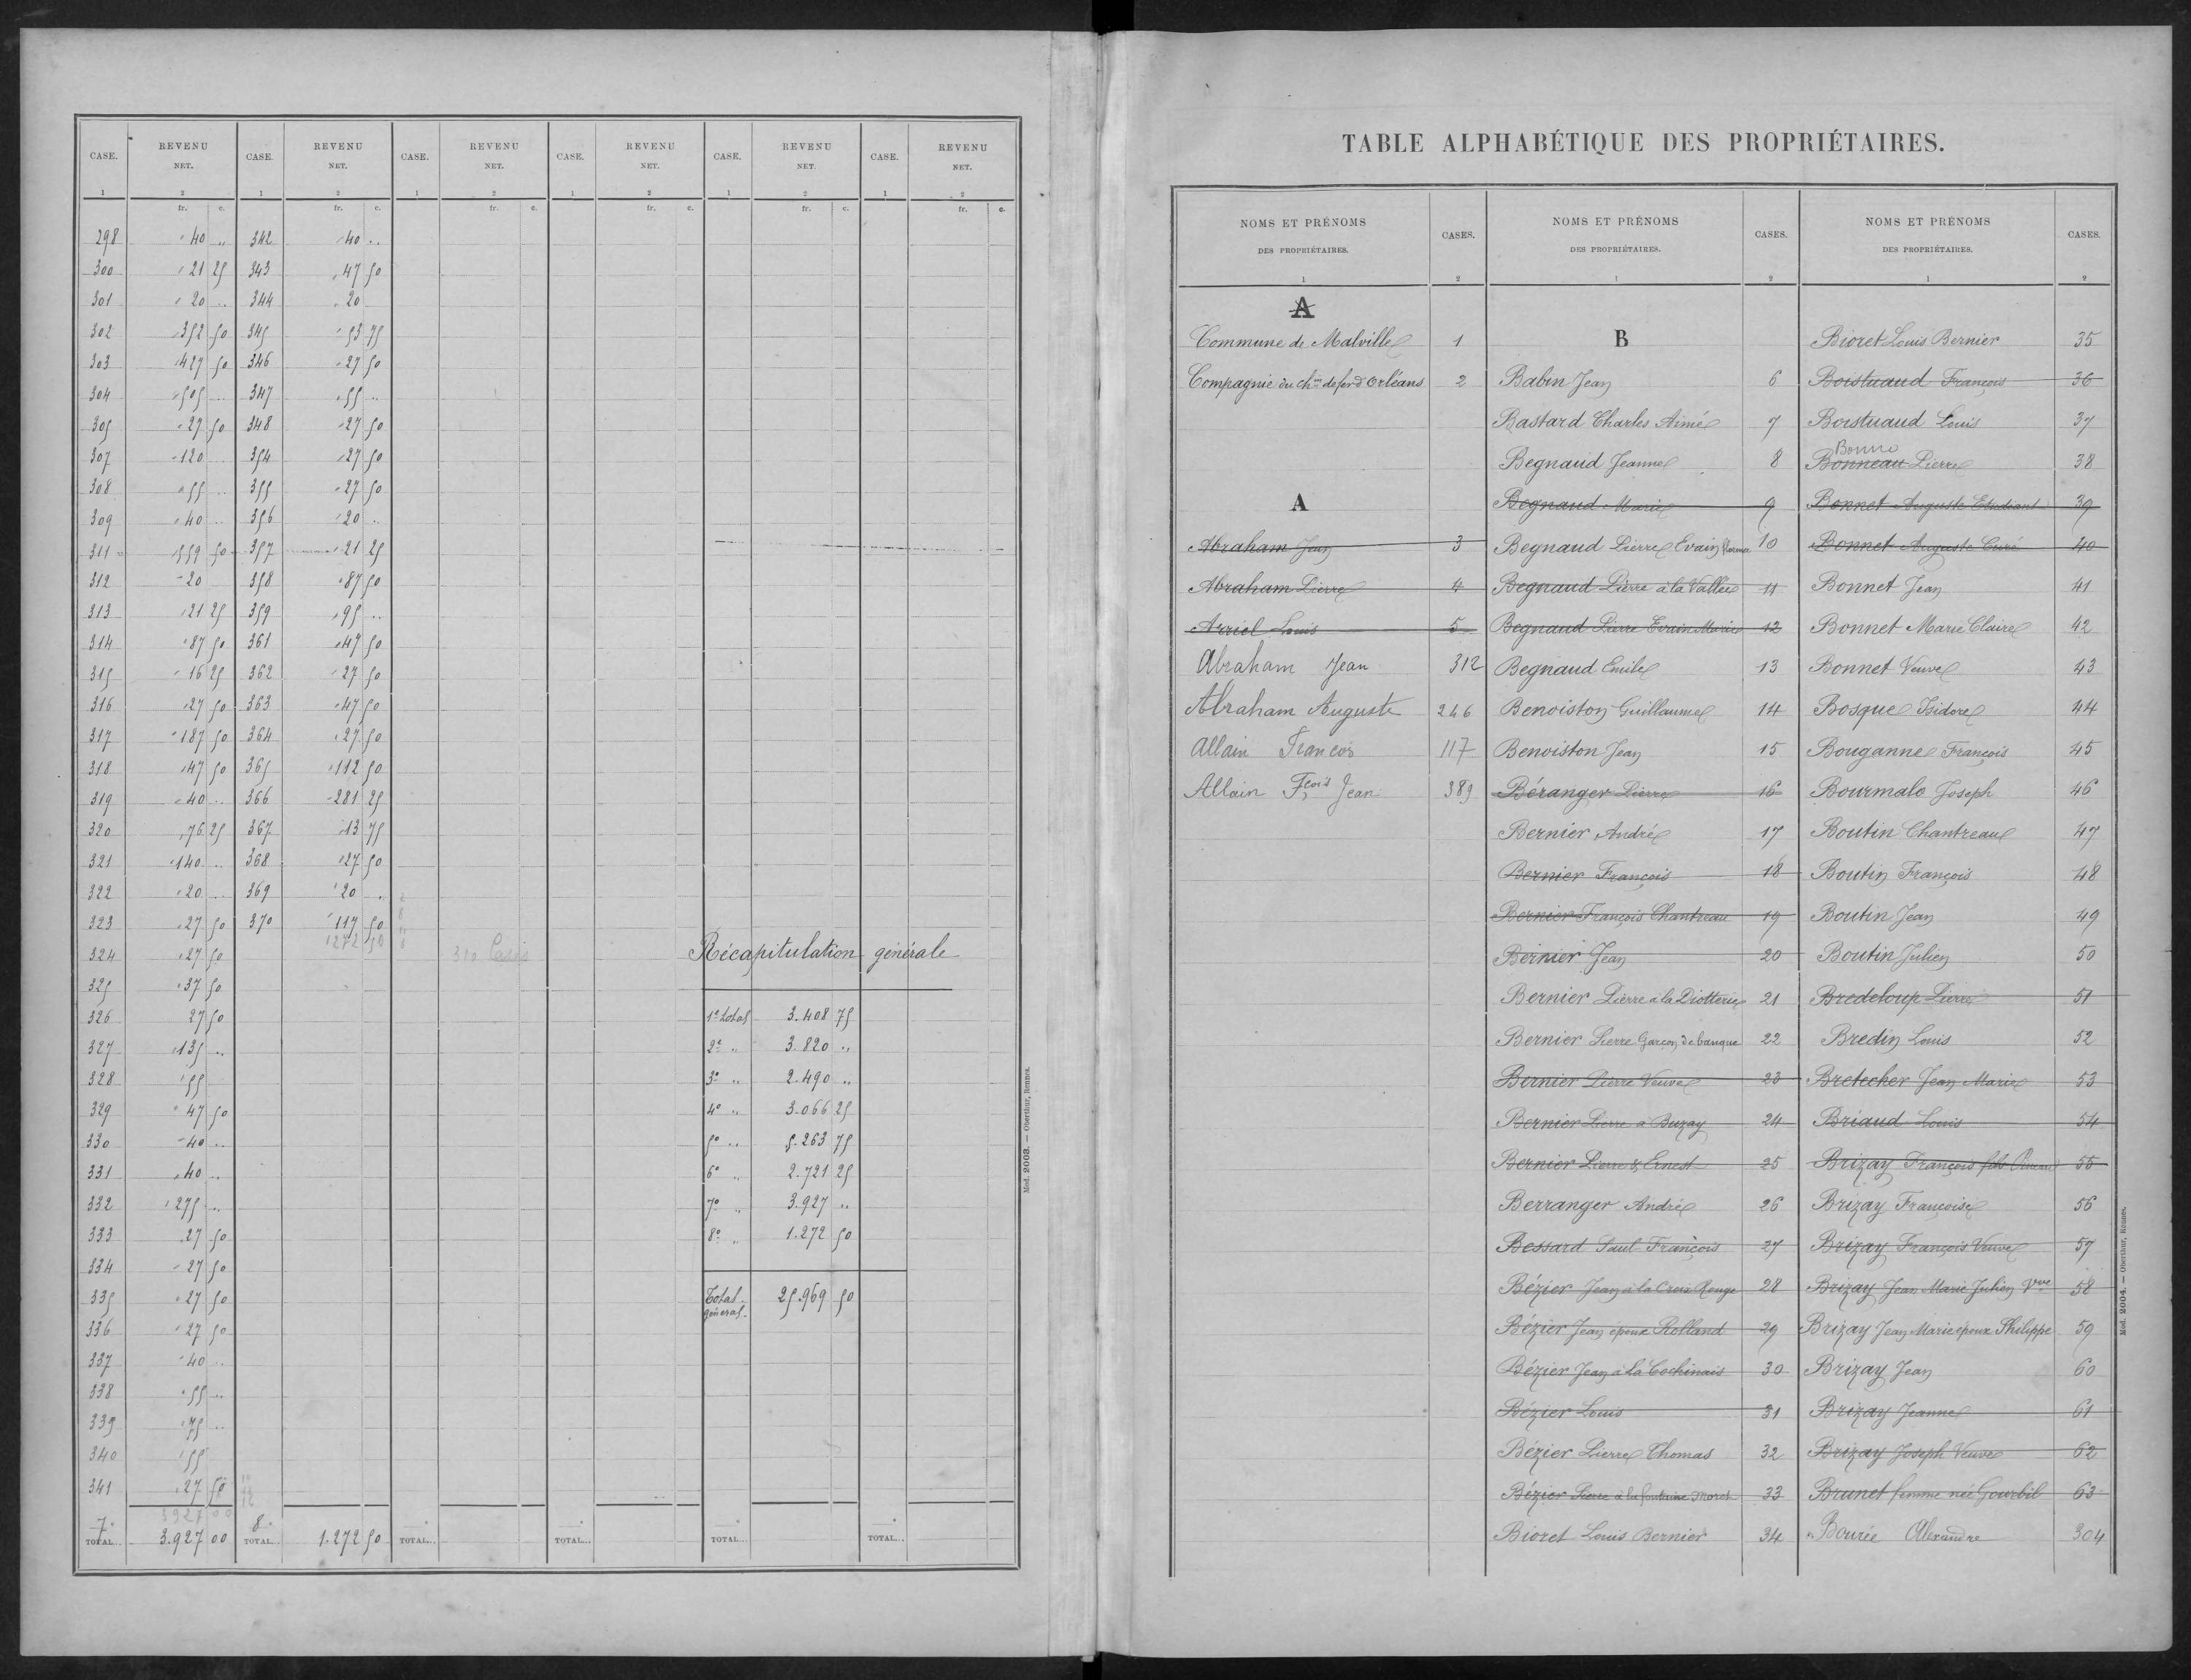 CASE. REVENU NET. CASE. REVENU NET. CASE. REVENU NET. CASE. REVENU NET. CASE. REVENU NET. CASE. REVENU NET.
1 2 1 2 1 2 1 2 1 2 1 2
fr. c. fr. c. fr. c. fr. c. fr. c. fr. c.
298 40 .. 342 40 ..
300 21 25 343 47 50
301 20 .. 344 20
302 352 50 345 53 75
303 427 50 346 27 50
304 505 .. 347 55 ..
305 27 50 348 27 50
307 120 354 27 50
308 55 .. 355 27 50
309 40 .. 356 20 ..
311 559 50 357 21 25
312 20 358 87 50
313 21 25 359 95 ..
314 87 50 361 47 50
315 16 25 362 27 50
316 27 50 363 47 50
317 187 50 364 27 50
318 47 50 365 112 50
319 40 .. 366 281 25
320 76 25 367 13 75
321 140 .. 368 27 50
322 20 .. 369 20 ..
323 27 50 370 117 50
1272 50
324 27 50 310 Cases Récapitulation générale
325 37 50
326 27 50 1e total 3.408 75
327 135 .. 2e .. 3.820 ..
328 55 3e .. 2.490 ..
329 47 50 4e .. 3.066 25
330 40 .. 5e .. 5.263 75
331 40 .. 6e .. 2.721 25
332 275 .. 7e .. 3.927 ..
333 27 50 8e .. 1.272 50
334 27 50
335 27 50 Total général. 25.969 50
336 27 50
337 40 ..
338 55 ..
339 75 ..
340 55
341 27 50
3927 00
7e TOTAL... 3.927 00 8e TOTAL... 1.272 50 TOTAL... TOTAL... TOTAL... TOTAL...
Mod. 2003. — Oberthur, Rennes.
TABLE ALPHABÉTIQUE DES PROPRIÉTAIRES.
NOMS ET PRÉNOMS DES PROPRIÉTAIRES. CASES. NOMS ET PRÉNOMS DES PROPRIÉTAIRES. CASES. NOMS ET PRÉNOMS DES PROPRIÉTAIRES. CASES.
1 2 1 2 1 2
A
Commune de Malville 1
Compagnie du chin de fer d'Orléans 2
A
Abraham Jean 3
Abraham Pierre 4
Arriel Louis 5
Abraham Jean 312
Abraham Auguste 246
Allain Francois 117
Allain Fçois Jean 389
B
Babin Jean 6
Bastard Charles Aimé 7
Begnaud Jeanne 8
Begnaud Marie 9
Begnaud Pierre Evain 10
Begnaud Pierre à la Vallée 11
Begnaud Pierre Evain Marie 12
Begnaud Emile 13
Benoiston Guillaume 14
Benoiston Jean 15
Béranger Pierre 16
Bernier André 17
Bernier François 18
Bernier François Chantreau 19
Bernier Jean 20
Bernier Pierre à la Diotterie 21
Bernier Pierre Garçon de banque 22
Bernier Pierre Veuve 23
Bernier Pierre à Buzay 24
Bernier Pierre & Ernest 25
Berranger André 26
Bessard Paul François 27
Bézier Jean à la Croix Rouge 28
Bézier Jean époux Rolland 29
Bézier Jean à la Cochinais 30
Bézier Louis 31
Bézier Pierre Thomas 32
Bézier Pierre à la fontaine Morel 33
Bioret Louis Bernier 34
Bioret Louis Bernier 35
Boistuaud François 36
Boistuaud Louis 37
Bonno
Bonneau Pierre 38
Bonnet Auguste Etudiant 39
Bonnet Auguste Curé 40
Bonnet Jean 41
Bonnet Marie Claire 42
Bonnet Veuve 43
Bosque Isidore 44
Bouganne François 45
Bourmalo Joseph 46
Boutin Chantreau 47
Boutin François 48
Boutin Jean 49
Boutin Julien 50
Bredeloup Pierre 51
Bredin Louis 52
Bretecher Jean Marie 53
Briaud Louis 54
Brizay François fils 55
Brizay Françoise 56
Brizay François Veuve 57
Brizay Jean Marie Julien Vve 58
Brizay Jean Marie époux Philippe 59
Brizay Jean 60
Brizay Jeanne 61
Brizay Joseph Veuve 62
Brunet femme née Gourbil 63
Bourée Alexandre 304
Mod. 2004. — Oberthur, Rennes.